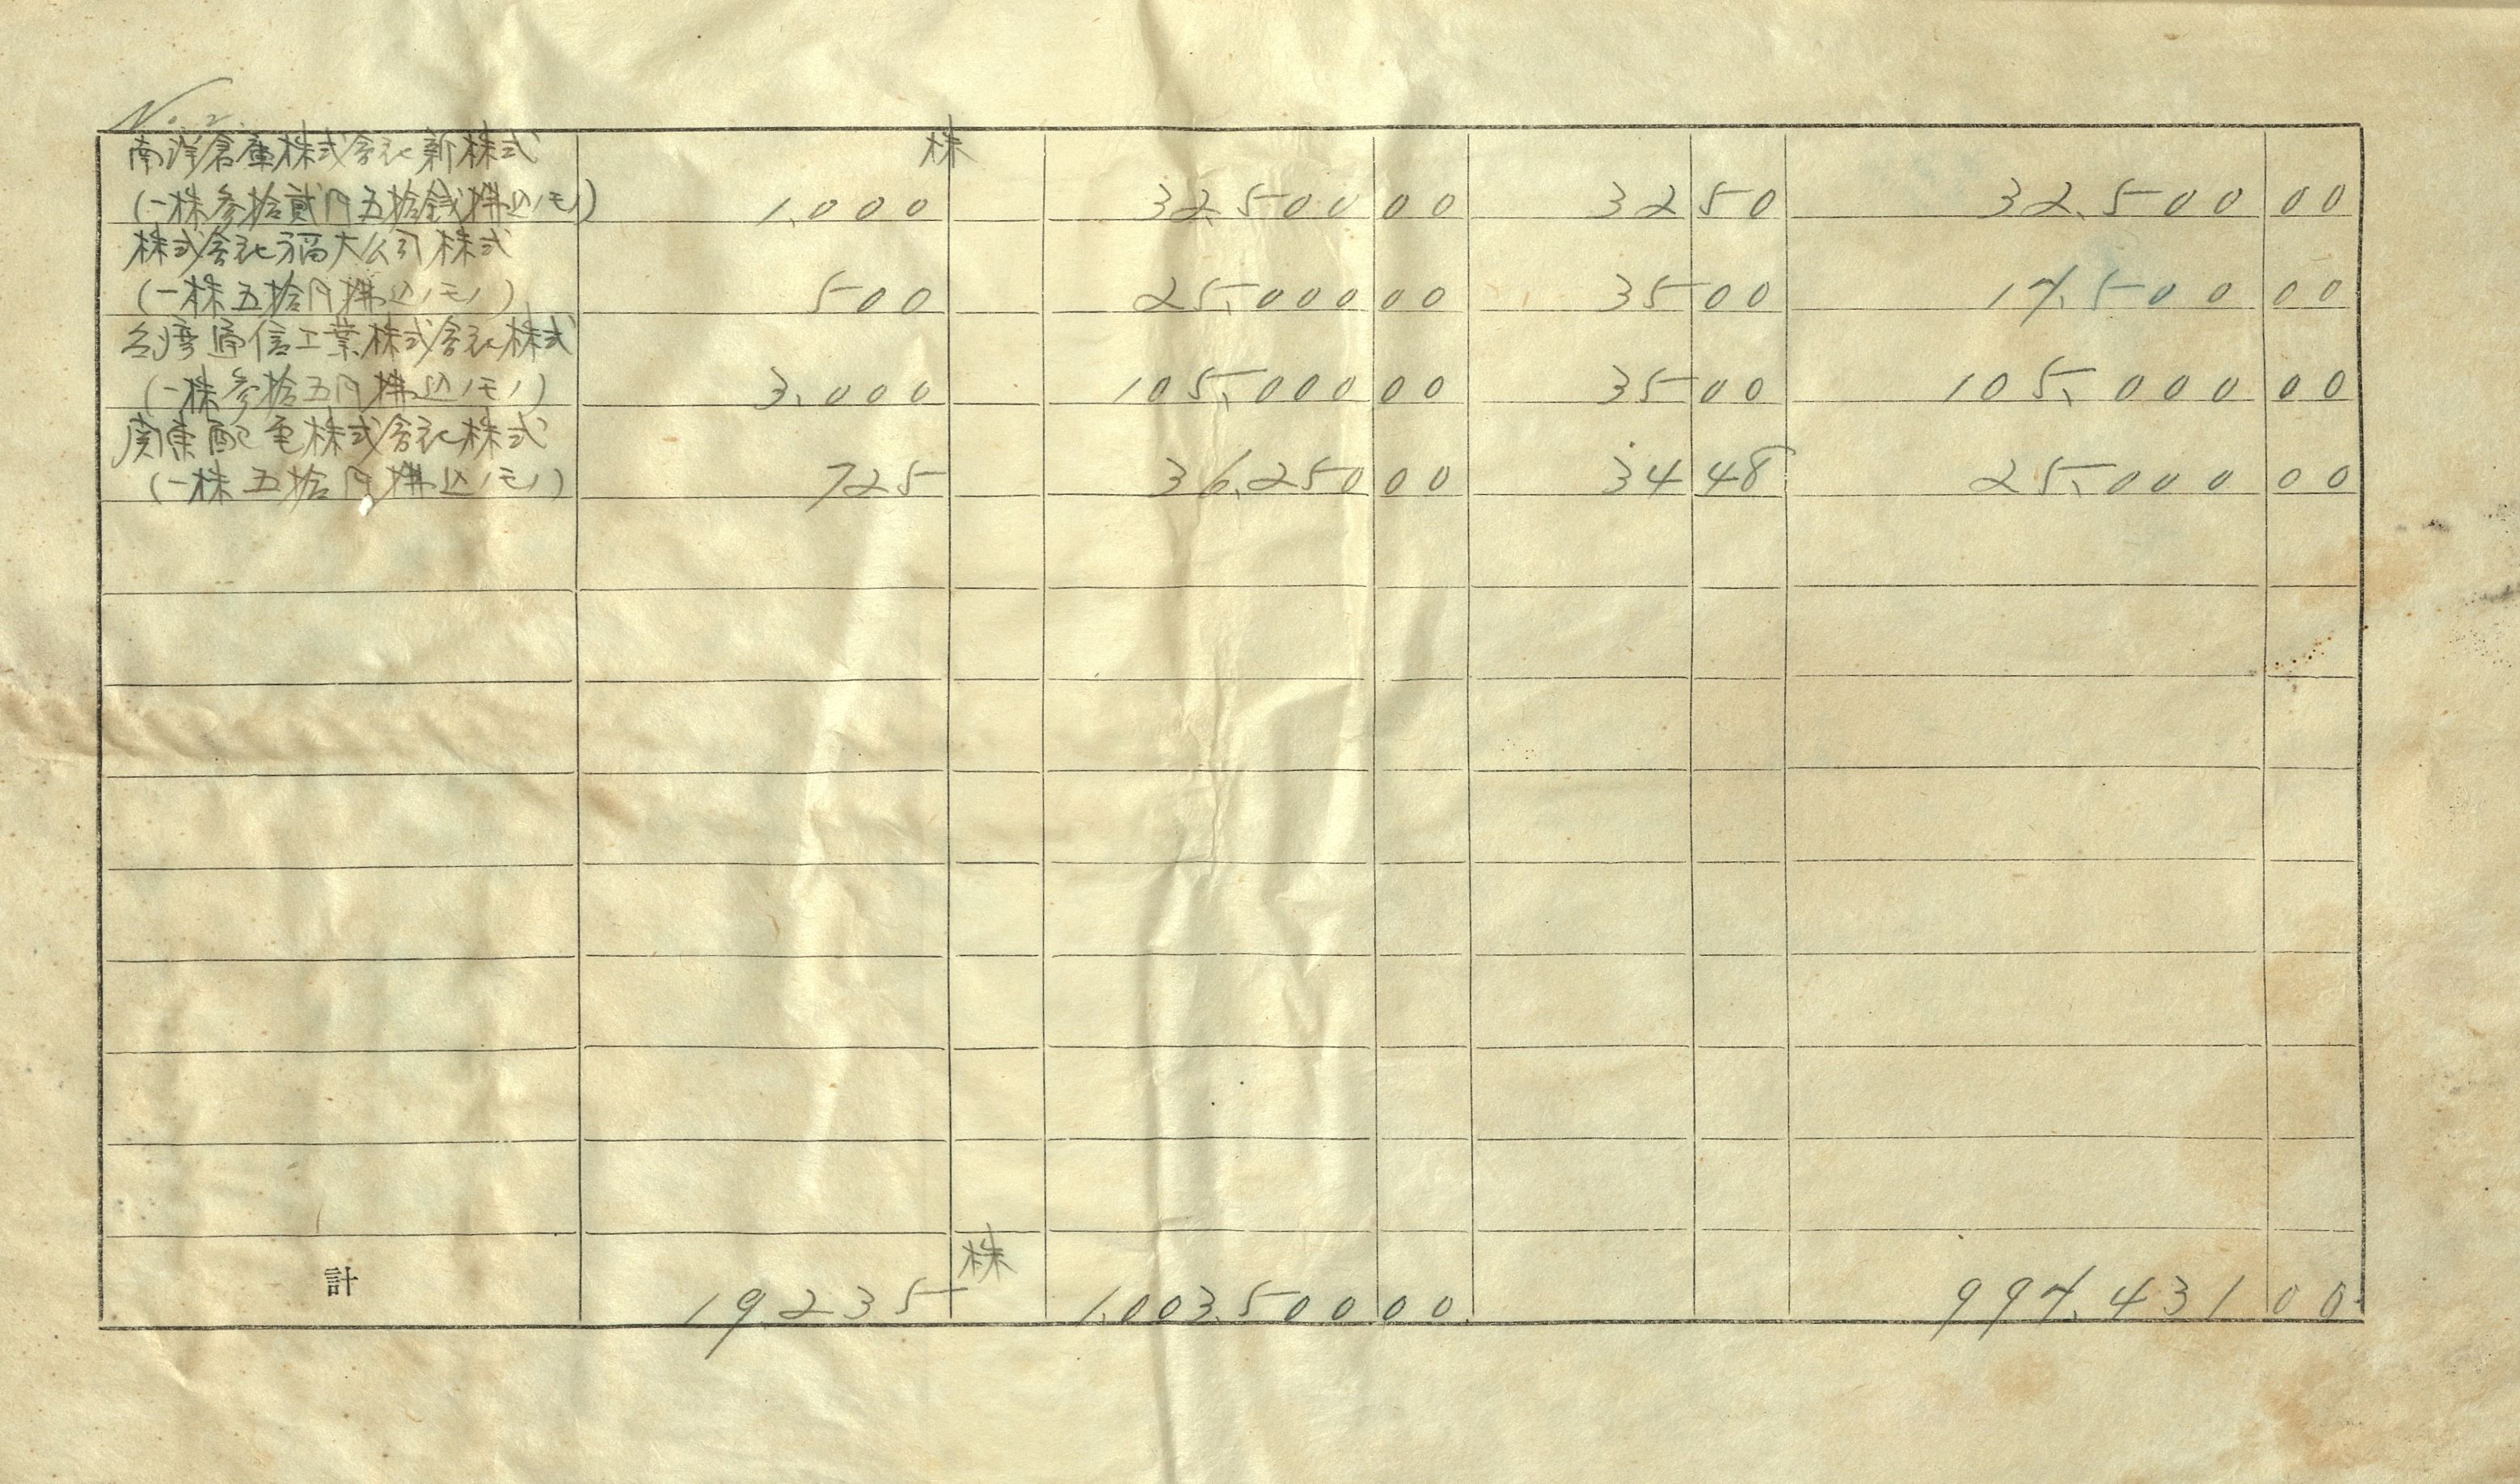 No. 2.
南洋倉庫株式会社新株式 株
(一株参拾貳円五拾銭払込ノモノ) 1,000 32,500 00 32 50 32,500 00
株式会社福大公司株式
(一株五拾円払込ノモノ) 500 25,000 00 35 00 17,500 00
台湾通信工業株式会社株式
(一株参拾五円払込ノモノ) 3,000 105,000 00 35 00 105,000 00
関東配電株式会社株式
(一株五拾円払込ノモノ) 725 36,250 00 34 48 25,000 00
計 19,235 株 1,003,500 00 997,431 00